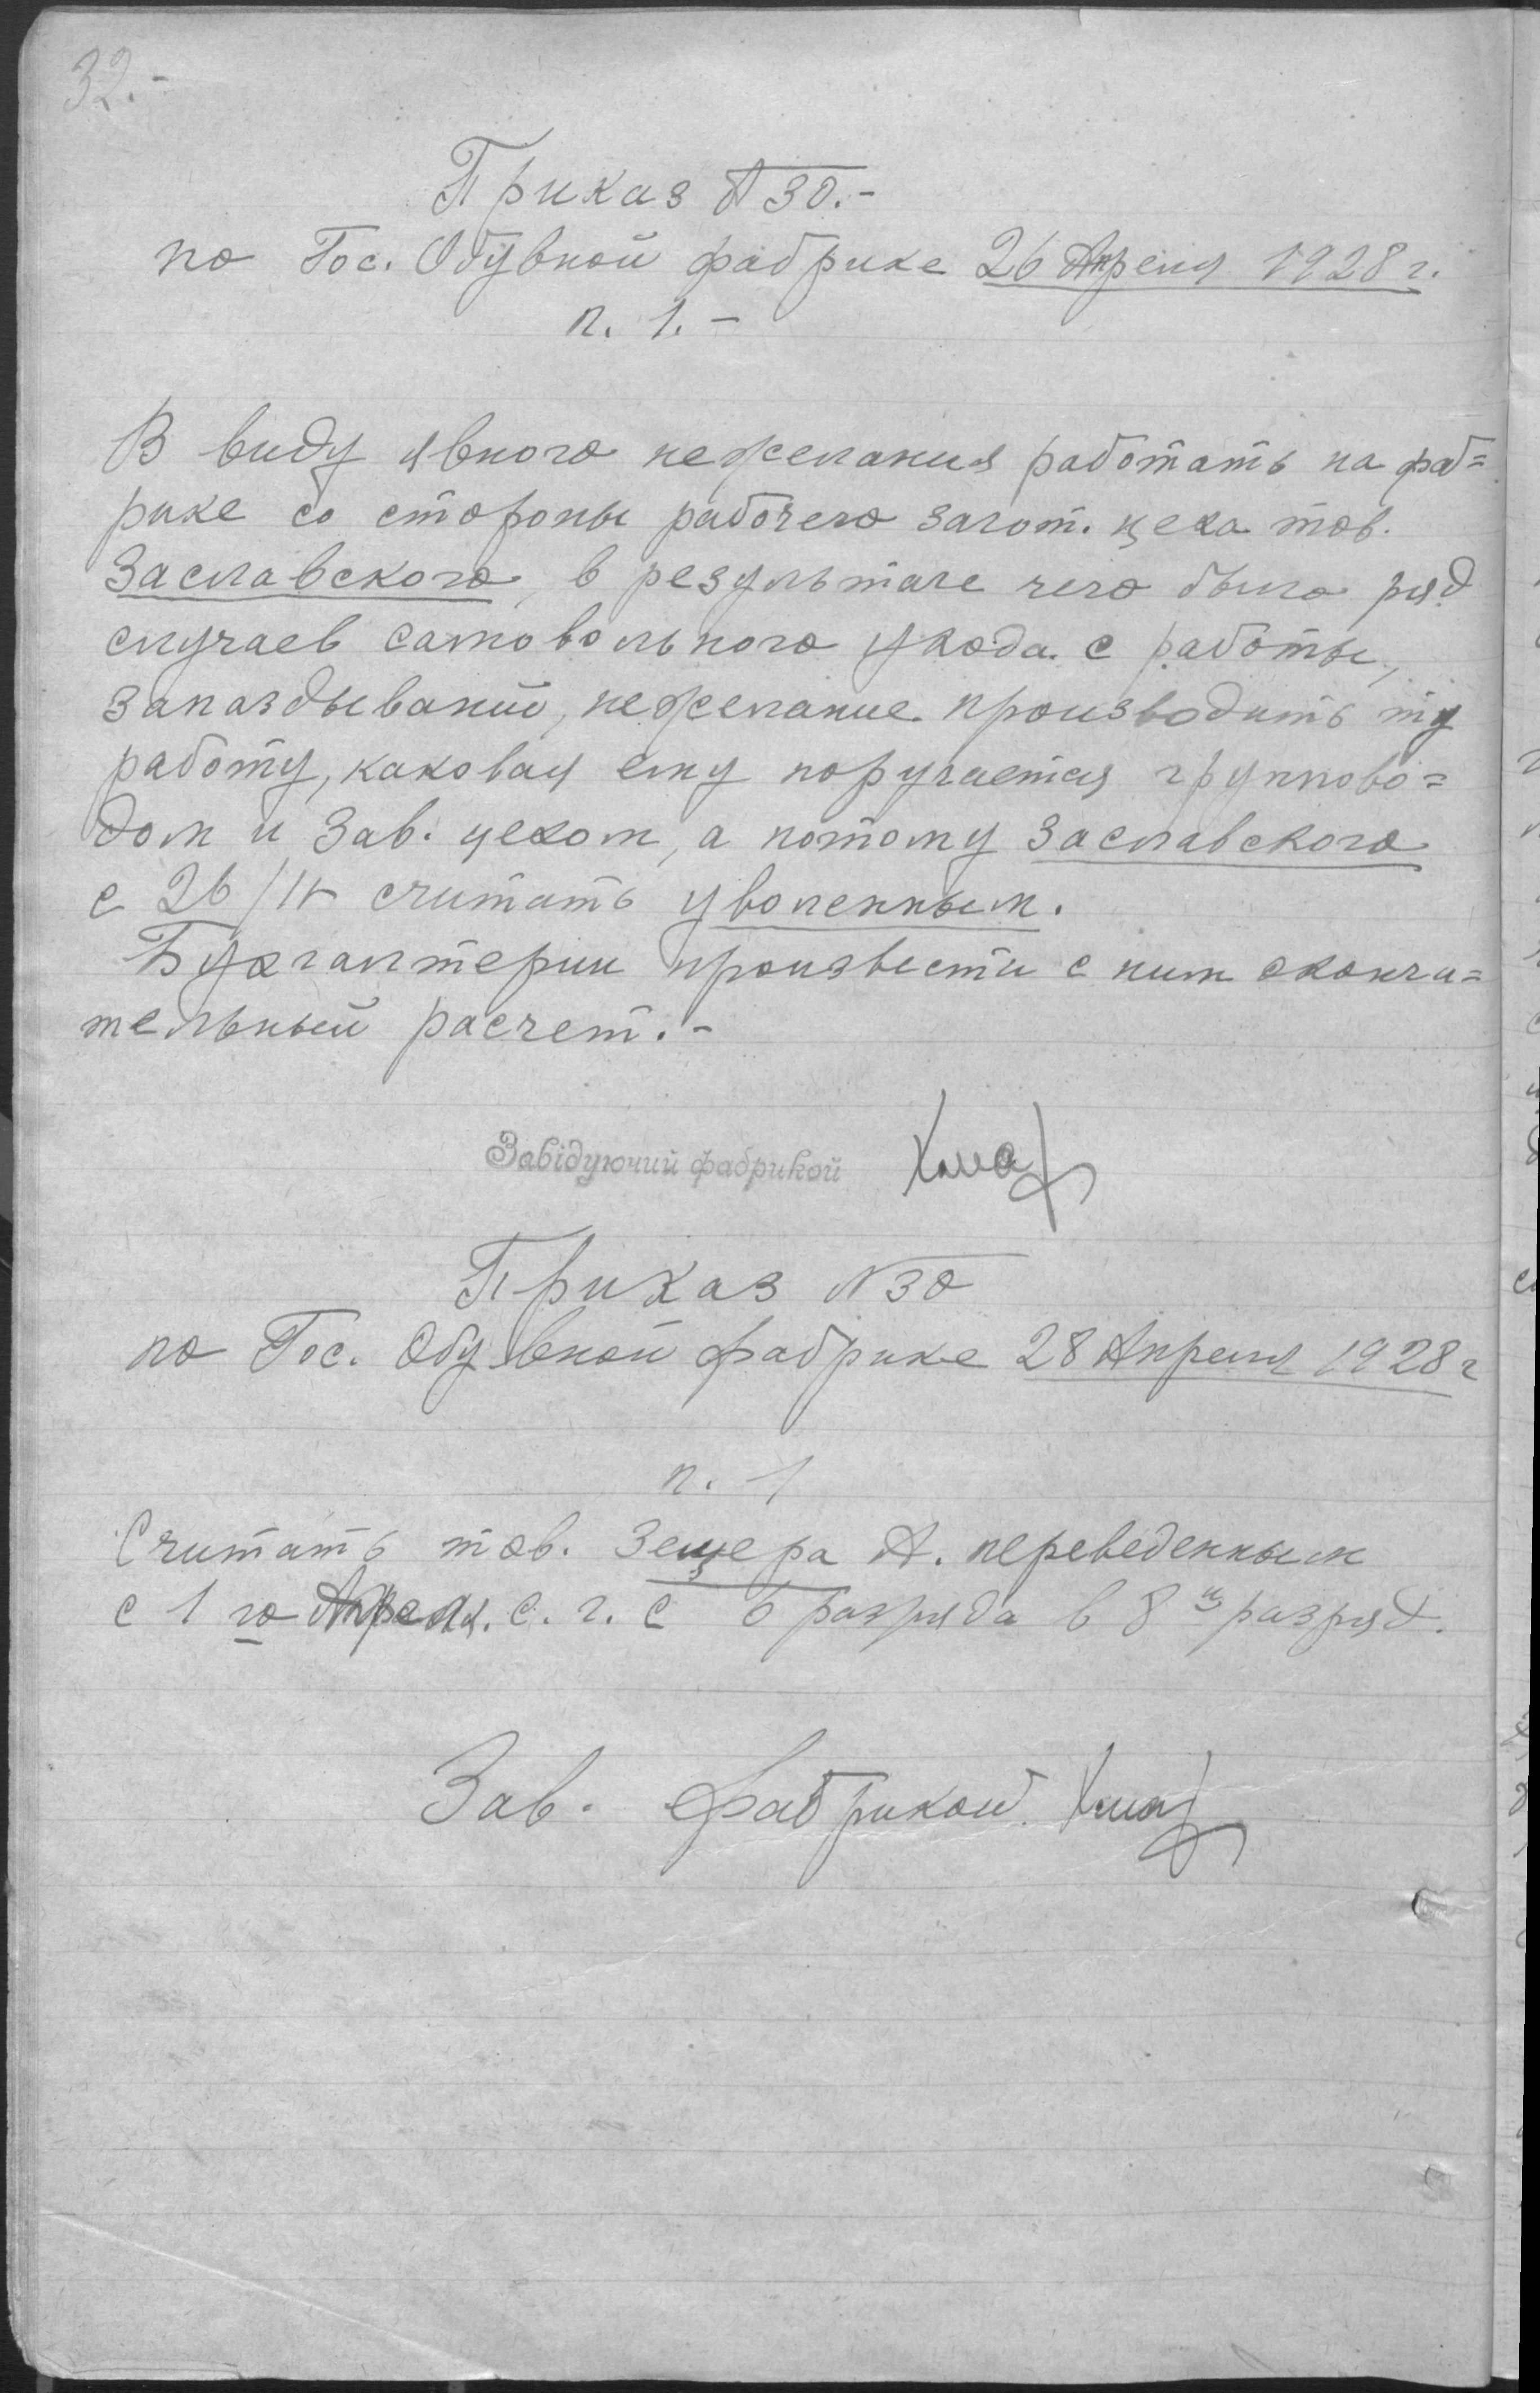 32.-
Приказ № 30.-
по Гос. Обувной фабрике 26 Апреля 1928 г.
п. 1.-
В виду явного нежелания работать на фаб=
рике со стороны рабочего загот. цеха тов.
Заславского, в результате чего было ряд
случаев самовольного ухода с работы,
запаздываний, нежелание производить ту
работу, каковая ему поручается группово=
дом и Зав. цехом, а потому Заславского
с 26/IV считать уволенным.
Бухгалтерии произвести с ним оконча=
тельный расчет.-
Завідуючий фабрикой
Приказ № 30
по Гос. Обувной фабрике 28 Апреля 1928 г
п. 1
Считать тов. Зецера А. переведенным
с 1 го Апреля. с. г. с 6 разряда в 8й разряд.
Зав. фабрикой.